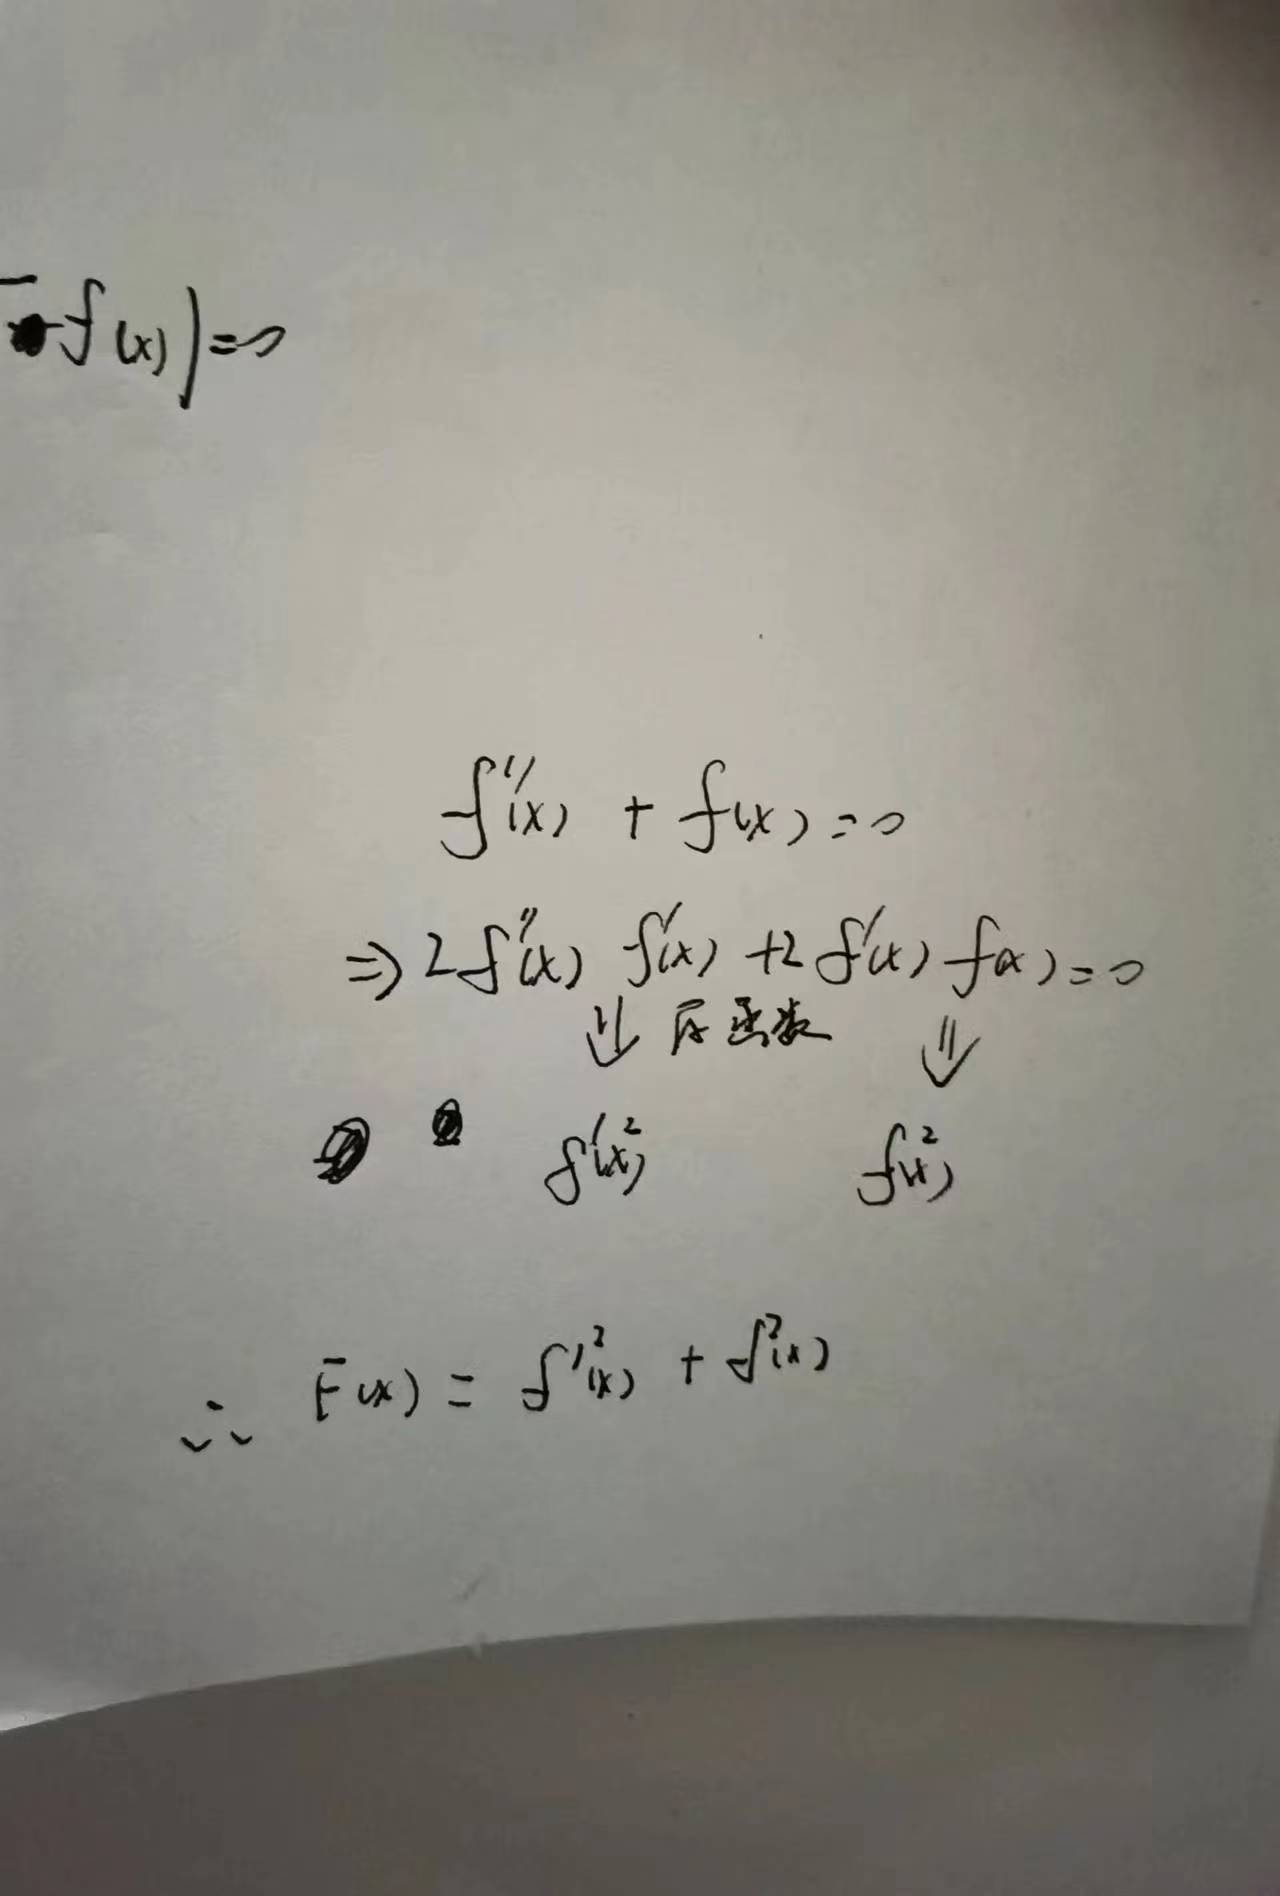 f(x)|=0
f''(x) + f(x)=0
⇒ 2f''(x) f'(x) +2 f'(x) f(x)=0
⇓ 反函数 ⇓
f'(x)² f(x)²
∴ F(x) = f'²(x) + f²(x)